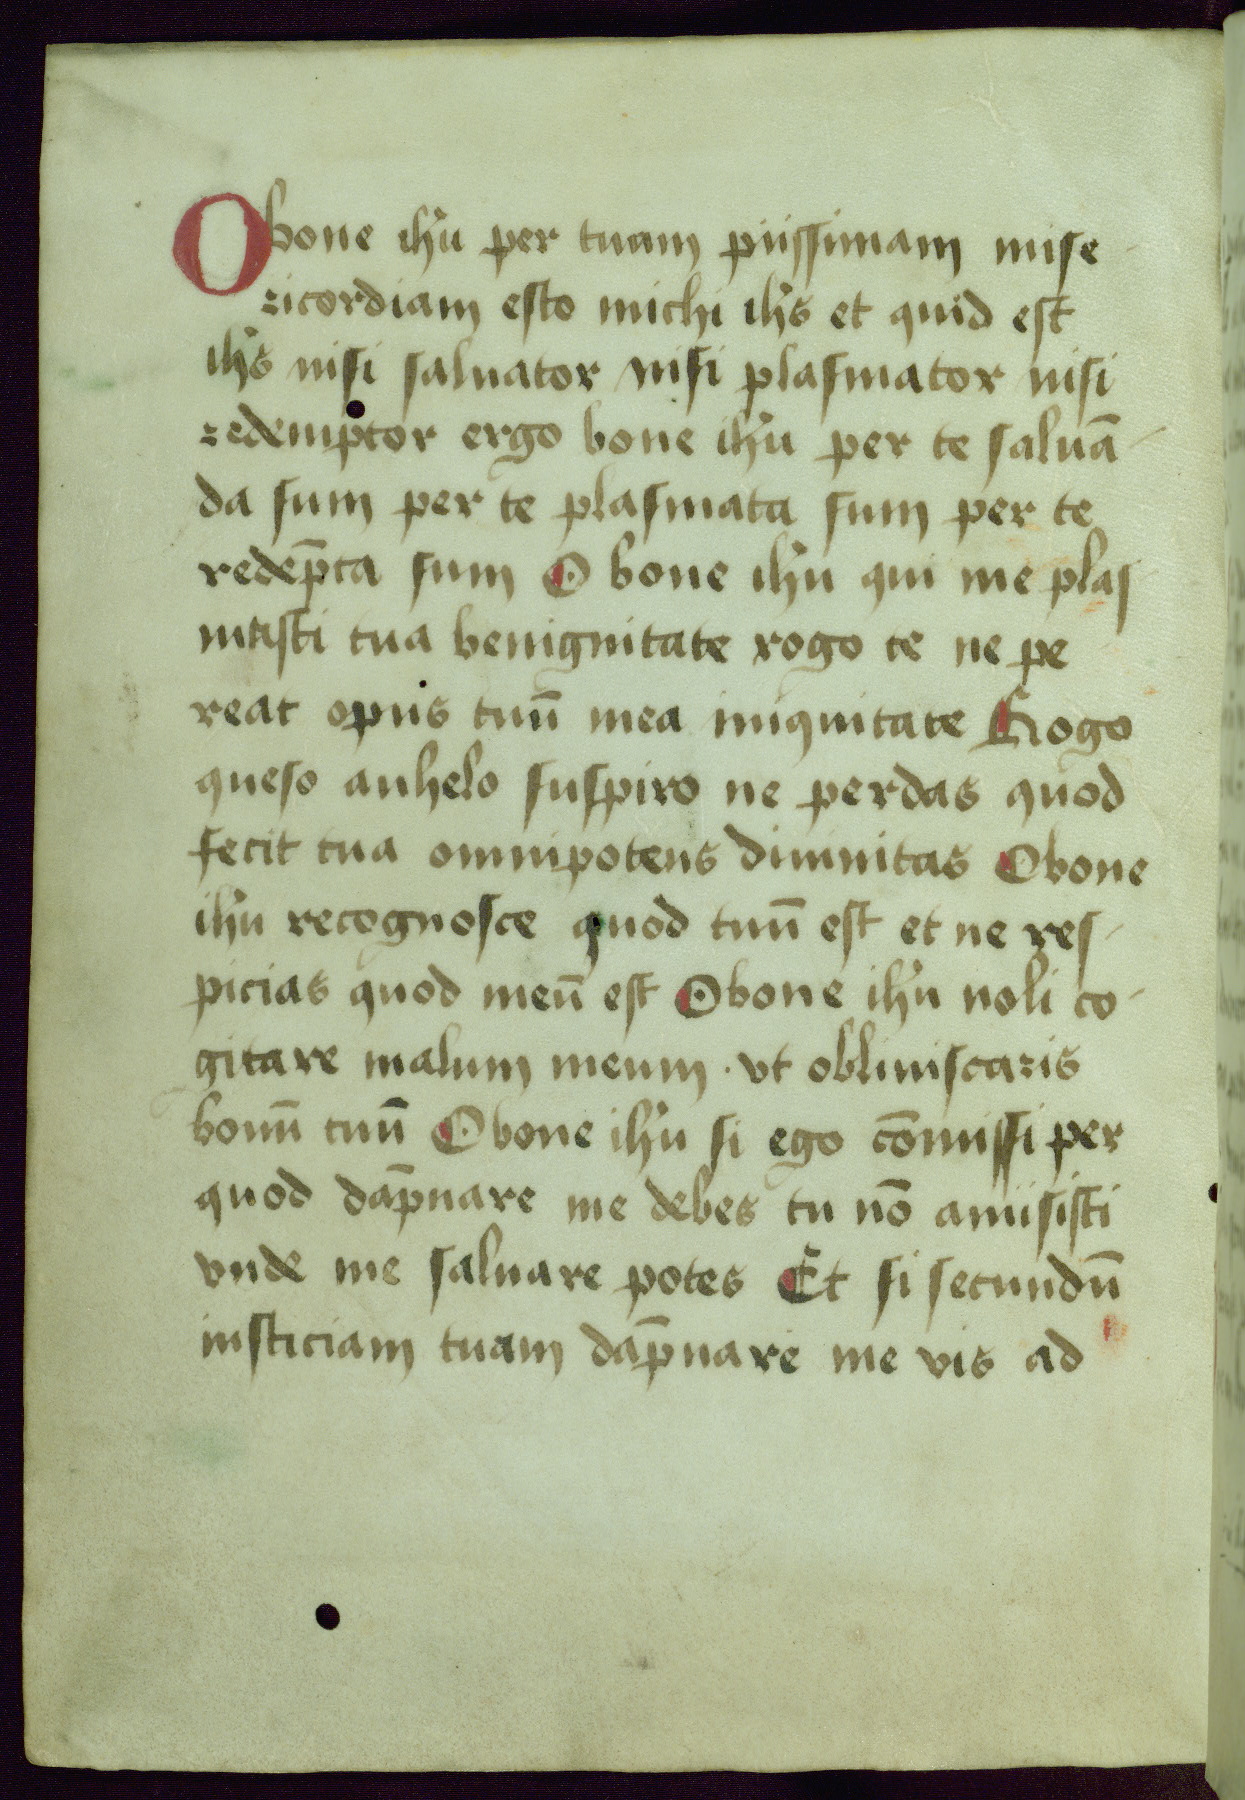 O bone ihu per tuam piissimam mise
ricordiam esto michi ihs et quid est
ihs nisi saluator nisi plasmator nisi
redemptor ergo bone ihu per te saluā
da sum per te plasmata sum per te
redep̄ta sum O bone ihu qui me plas
masti tua benignitate rogo te ne pe
reat opus tuū mea iniquitate Rogo
queso anhelo suspiro ne perdas quod
fecit tua omnipotens diuinitas O bone
ihu recognosce quod tuū est et ne res
picias quod meū est O bone ihu noli co
gitare malum meum · vt obliuiscaris
bonū tuū O bone ihu si ego cōmissi per
quod dap̄nare me debes tu nō amisisti
vnde me saluare potes Et si secundū
iusticiam tuam dap̄nare me vis ad